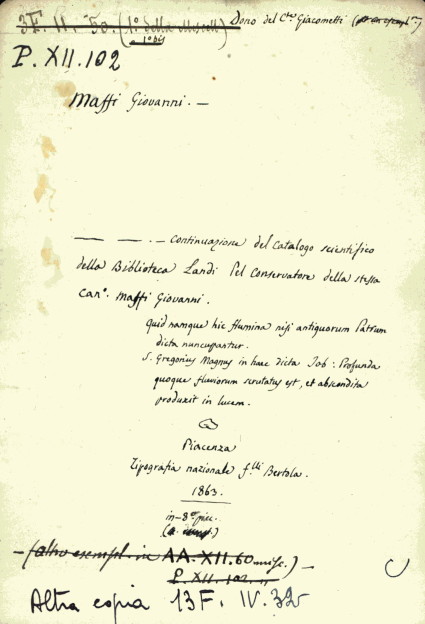 3F. II. 50. (1° della Miscell.) Dono del C.te Giacometti
1° bis
P. XII. 102
Maffi Giovanni. —
— — . — Continuazione del Catalogo scientifico
della Biblioteca Landi Pel Conservatore della stessa
Can°. Maffi Giovanni.
Quid namque hic flumina nisi antiquorum Patrum
dicta nuncupantur.
S. Gregorius Magnus in haec dicta Job: Profunda
quoque fluviorum scrutatus est, et abscondita
produxit in lucem.
Piacenza
Tipografia nazionale f.lli Bertola.
1863.
in-8° picc.
— (altro esempl. in AA. XII. 60 misc.) —
P. XII. 102
Altra copia 13F. IV. 32